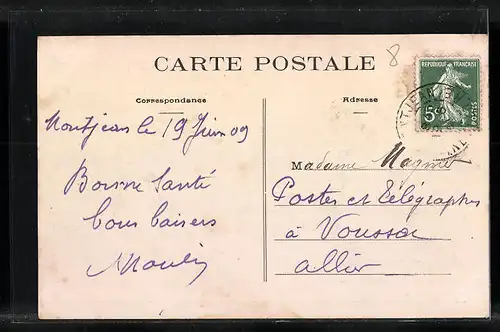 8
CARTE POSTALE
RÉPUBLIQUE FRANÇAISE
5c
POSTES
Correspondance
Adresse
Montjean le 19 Juin 09
Madame Magnier
Bonne Santé
Postes et Télégraphes
bons baisers
à Voussac
Moulin
allier